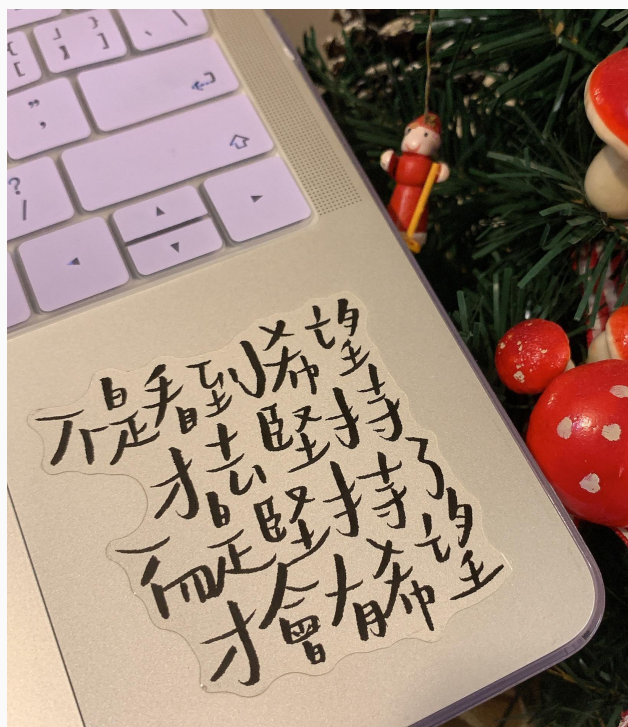 { 」 } 】
[ 】 ] \ 、
" '
? /
不是看到希望
才堅持
而是堅持了
才會有希望